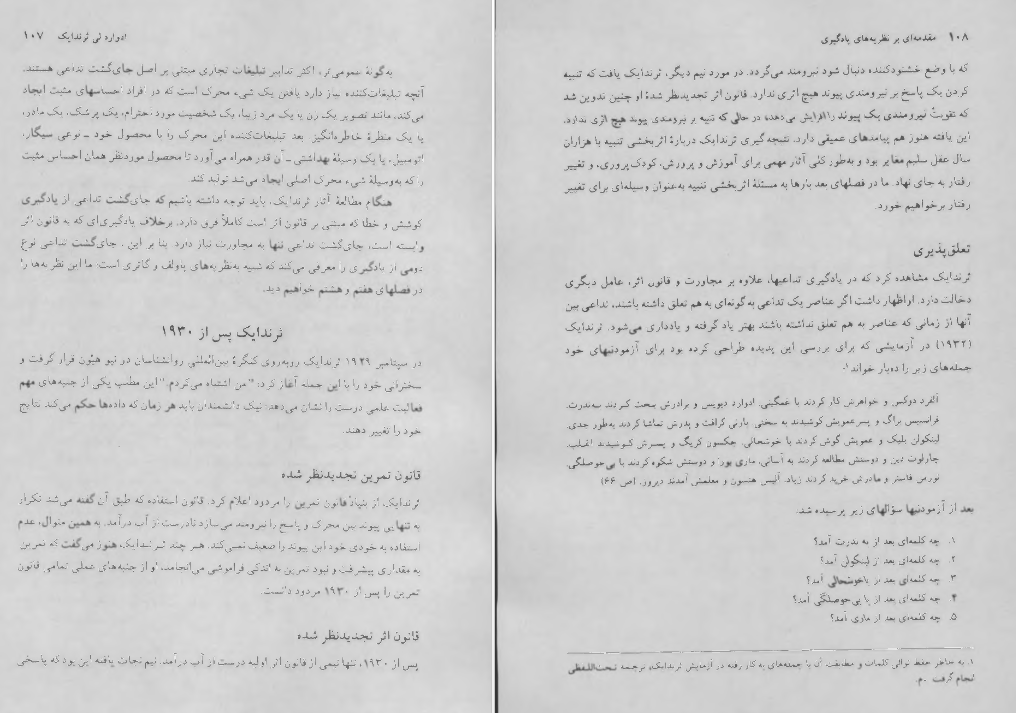 ادوارد لی ثرندایک ۱۰۷
به‌گونهٔ عمومی‌تر، اکثر تدابیر تبلیغات تجاری مبتنی بر اصل جای‌گشت تداعی هستند.
آنچه تبلیغات‌کننده نیاز دارد یافتن یک شیء محرک است که در افراد احساسهای مثبت ایجاد
می‌کند، مانند تصویر یک زن یا یک مرد زیبا، یک شخصیت مورد احترام، یک پزشک، یک مادر،
یا یک منظرهٔ خاطره‌انگیز. بعد تبلیغات‌کننده این محرک را با محصول خود - نوعی سیگار،
اتومبیل، یا یک وسیلهٔ بهداشتی - آن قدر همراه می‌آورد تا محصول موردنظر همان احساس مثبت
را که به‌وسیلهٔ شیء محرک اصلی ایجاد می‌شد تولید کند.
هنگام مطالعهٔ آثار ثرندایک، باید توجه داشته باشیم که جای‌گشت تداعی از یادگیری
کوشش و خطا که مبتنی بر قانون اثر است کاملاً فرق دارد. برخلاف یادگیری‌ای که به قانون اثر
وابسته است، جای‌گشت تداعی تنها به مجاورت نیاز دارد. بنا بر این، جای‌گشت تداعی نوع
دومی از یادگیری را معرفی می‌کند که شبیه به‌نظریه‌های پاولف و گاتری است. ما این نظریه‌ها را
در فصلهای هفتم و هشتم خواهیم دید.
ثرندایک پس از ۱۹۳۰
در سپتامبر ۱۹۲۹ ثرندایک روبه‌روی کنگرهٔ بین‌المللی روانشناسان در نیو هیون قرار گرفت و
سخنرانی خود را با این جمله آغاز کرد: "من اشتباه می‌کردم." این مطلب یکی از جنبه‌های مهم
فعالیت علمی درست را نشان می‌دهد: نیک دانشمندان باید هر زمان که داده‌ها حکم می‌کند نتایج
خود را تغییر دهند.
قانون تمرین تجدیدنظر شده
ثرندایک از بنیاد قانون تمرین را مردود اعلام کرد. قانون استفاده که طبق آن گفته می‌شد تکرار
به تنهایی پیوند بین محرک و پاسخ را نیرومند می‌سازد نادرست از آب درآمد. به همین منوال، عدم
استفاده به خودی خود این پیوند را ضعیف نمی‌کند. هر چند ثرندایک هنوز می‌گفت که تمرین
به مقداری پیشرفت و نبود تمرین به اندکی فراموشی می‌انجامد، او از جنبه‌های عملی تمامی قانون
تمرین را پس از ۱۹۳۰ مردود دانست.
قانون اثر تجدیدنظر شده
پس از ۱۹۳۰، تنها نیمی از قانون اثر اولیه درست از آب درآمد. نیم نجات یافته این بود که پاسخی
۱۰۸ مقدمه‌ای بر نظریه‌های یادگیری
که با وضع خشنودکننده دنبال شود نیرومند می‌گردد. در مورد نیم دیگر، ثرندایک یافت که تنبیه
کردن یک پاسخ بر نیرومندی پیوند هیچ اثری ندارد. قانون اثر تجدیدنظر شدهٔ او چنین تدوین شد
که تقویت نیرومندی یک پیوند را افزایش می‌دهد در حالی که تنبیه بر نیرومندی پیوند هیچ اثری ندارد.
این یافته هنوز هم پیامدهای عمیقی دارد. نتیجه‌گیری ثرندایک دربارهٔ اثربخشی تنبیه با هزاران
سال عقل سلیم مغایر بود و به‌طور کلی آثار مهمی برای آموزش و پرورش، کودک‌پروری، و تغییر
رفتار به جای نهاد. ما در فصلهای بعد بارها به مسئلهٔ اثربخشی تنبیه به‌عنوان وسیله‌ای برای تغییر
رفتار برخواهیم خورد.
تعلق‌پذیری
ثرندایک مشاهده کرد که در یادگیری تداعیها، علاوه بر مجاورت و قانون اثر، عامل دیگری
دخالت دارد. او اظهار داشت اگر عناصر یک تداعی به گونه‌ای به هم تعلق داشته باشند، تداعی بین
آنها از زمانی که عناصر به هم تعلق نداشته باشند بهتر یاد گرفته و یادداری می‌شود. ثرندایک
(۱۹۳۲) در آزمایشی که برای بررسی این پدیده طراحی کرده بود برای آزمودنیهای خود
جمله‌های زیر را ده‌بار خواند۱.
آلفرد دوکس و خواهرش کار کردند با غمگینی. ادوارد دیویس و برادرش سخت کردند به‌ندرت.
فرانسیس براگ و پسرعمویش کوشیدند به سختی. بارنی کرافت و پدرش تماشا کردند به‌طور جدی.
لینکولن بلیک و عمویش گوش کردند با خوشحالی. جکسون کریگ و پسرش کوشیدند اغلب.
چارلوت دین و دوستش مطالعه کردند به آسانی. ماری بورا و دوستش شکوه کردند با بی‌حوصلگی.
نورمن فاستر و مادرش خرید کردند زیاد. آلیس هنسون و معلمش آمدند دیروز. (ص ۶۶)
بعد از آزمودنیها سؤالهای زیر پرسیده شد.
۱. چه کلمه‌ای بعد از به ندرت آمد؟
۲. چه کلمه‌ای بعد از لینکولن آمد؟
۳. چه کلمه‌ای بعد از با خوشحالی آمد؟
۴. چه کلمه‌ای بعد از با بی‌حوصلگی آمد؟
۵. چه کلمه‌ای بعد از ماری آمد؟
۱. به خاطر حفظ توالی کلمات و مطابقت آن با جمله‌های به کار رفته در آزمایش ثرندایک، ترجمه تحت‌اللفظی
انجام گرفت. -م.